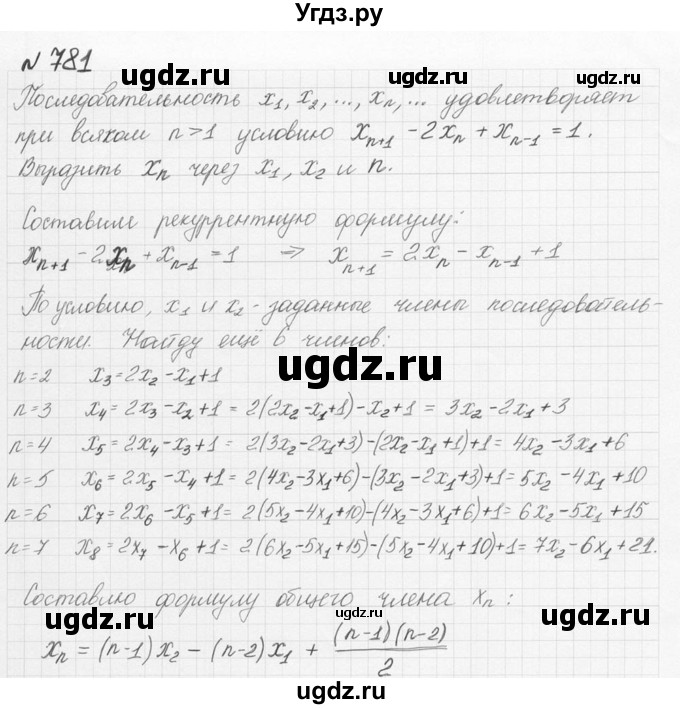 Угдз.ру
№ 781
ugdz.ru ugdz.ru
Последовательность x₁, x₂, ..., xₙ, ... удовлетворяет
при всяком n>1 условию xₙ₊₁ - 2xₙ + xₙ₋₁ = 1.
Выразить xₙ через x₁, x₂ и n.
ugdz.ru
Составим рекуррентную формулу:
xₙ₊₁ - 2xₙ + xₙ₋₁ = 1 ⇒ xₙ₊₁ = 2xₙ - xₙ₋₁ + 1
По условию, x₁ и x₂ - заданные члены последователь-
ности. Найду ещё 6 членов:
ugdz.ru ugdz.ru
n=2 x₃=2x₂-x₁+1
n=3 x₄=2x₃-x₂+1=2(2x₂-x₁+1)-x₂+1=3x₂-2x₁+3
n=4 x₅=2x₄-x₃+1=2(3x₂-2x₁+3)-(2x₂-x₁+1)+1=4x₂-3x₁+6
n=5 x₆=2x₅-x₄+1=2(4x₂-3x₁+6)-(3x₂-2x₁+3)+1=5x₂-4x₁+10
ugdz.ru
n=6 x₇=2x₆-x₅+1=2(5x₂-4x₁+10)-(4x₂-3x₁+6)+1=6x₂-5x₁+15
n=7 x₈=2x₇-x₆+1=2(6x₂-5x₁+15)-(5x₂-4x₁+10)+1=7x₂-6x₁+21.
Составлю формулу общего члена xₙ:
ugdz.ru ugdz.ru ugdz.ru
xₙ = (n-1)x₂ - (n-2)x₁ + (n-1)(n-2)/2
ugdz.ru